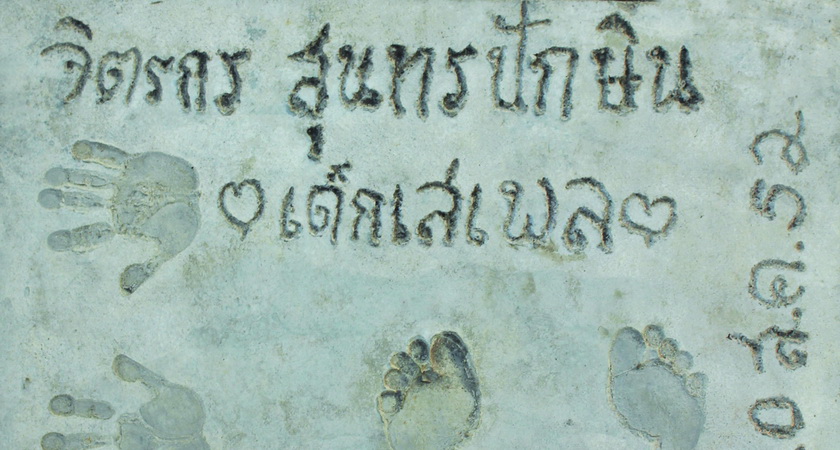 จิตรกร สุนทรปักษิน
♡เด็กเสเพล♡
๐ ส.ค. ๕๒